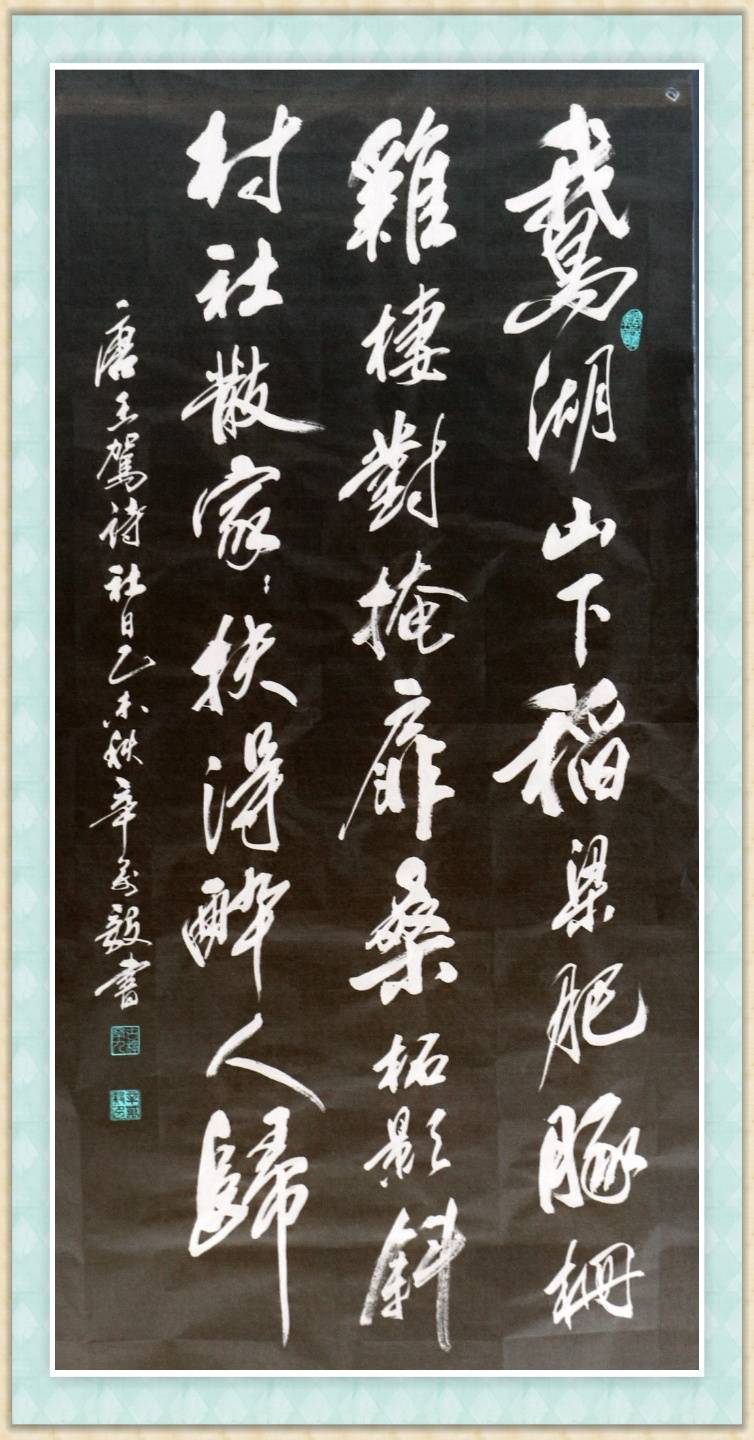 鵞湖山下稻梁肥豚柵
雞棲對掩扉桑柘影斜
村社散家〻扶得醉人歸
唐王駕詩社日乙未秋辛萬毅書